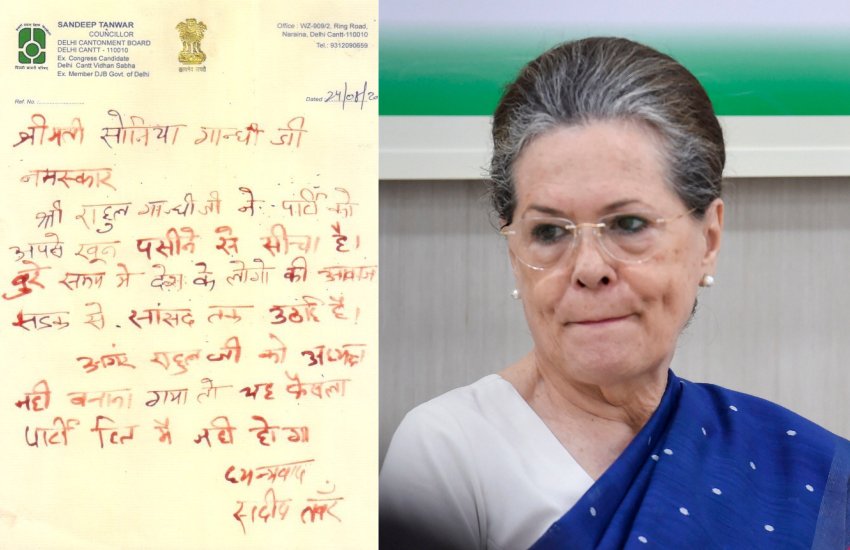 SANDEEP TANWAR
COUNCILLOR
DELHI CANTONMENT BOARD
DELHI CANTT - 110010
Ex. Congress Candidate
Delhi Cantt Vidhan Sabha
Ex. Member DJB Govt. of Delhi
Office : WZ-909/2, Ring Road,
Naraina, Delhi Cantt-110010
Tel.: 9312090659
Ref. No.
Dated
श्रीमती सोनिया गान्धी जी
नमस्कार
श्री राहुल गान्धीजी ने पार्टि को
अपसे खून पसीने से सीचा है।
बुरे समय मे देश के लोगो की आवाज
सडक से सांसद तक उठाई है।
अगर राहुल जी को अध्यक्ष
नही बनाया गया तो यह फैसला
पार्टी हित मे नही होगा
धन्यवाद